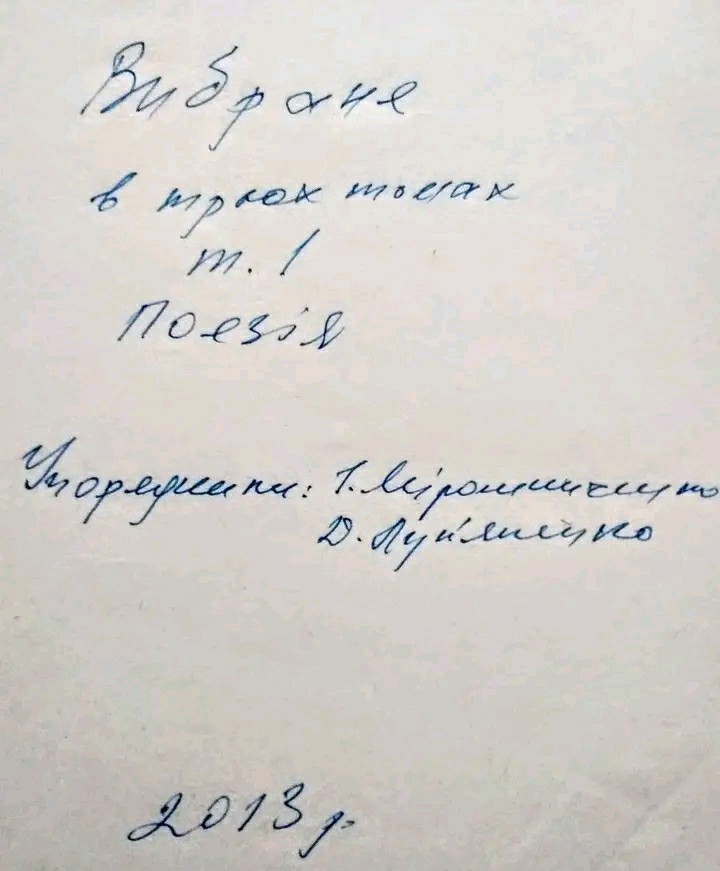 Вибране
в трьох томах
т. 1
Поезія
Упорядники: І. Мірошниченко
Д. Лук'яненко
2013 р.